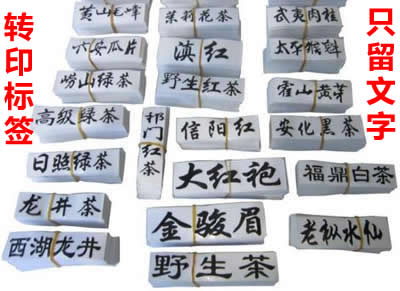 转印标签
只留文字
黄山毛峰
茉莉花茶
武夷肉桂
六安瓜片
滇红
太平猴魁
崂山绿茶
野生红茶
霍山黄芽
高级绿茶
祁门红茶
信阳红
安化黑茶
日照绿茶
大红袍
福鼎白茶
龙井茶
金骏眉
老枞水仙
西湖龙井
野生茶